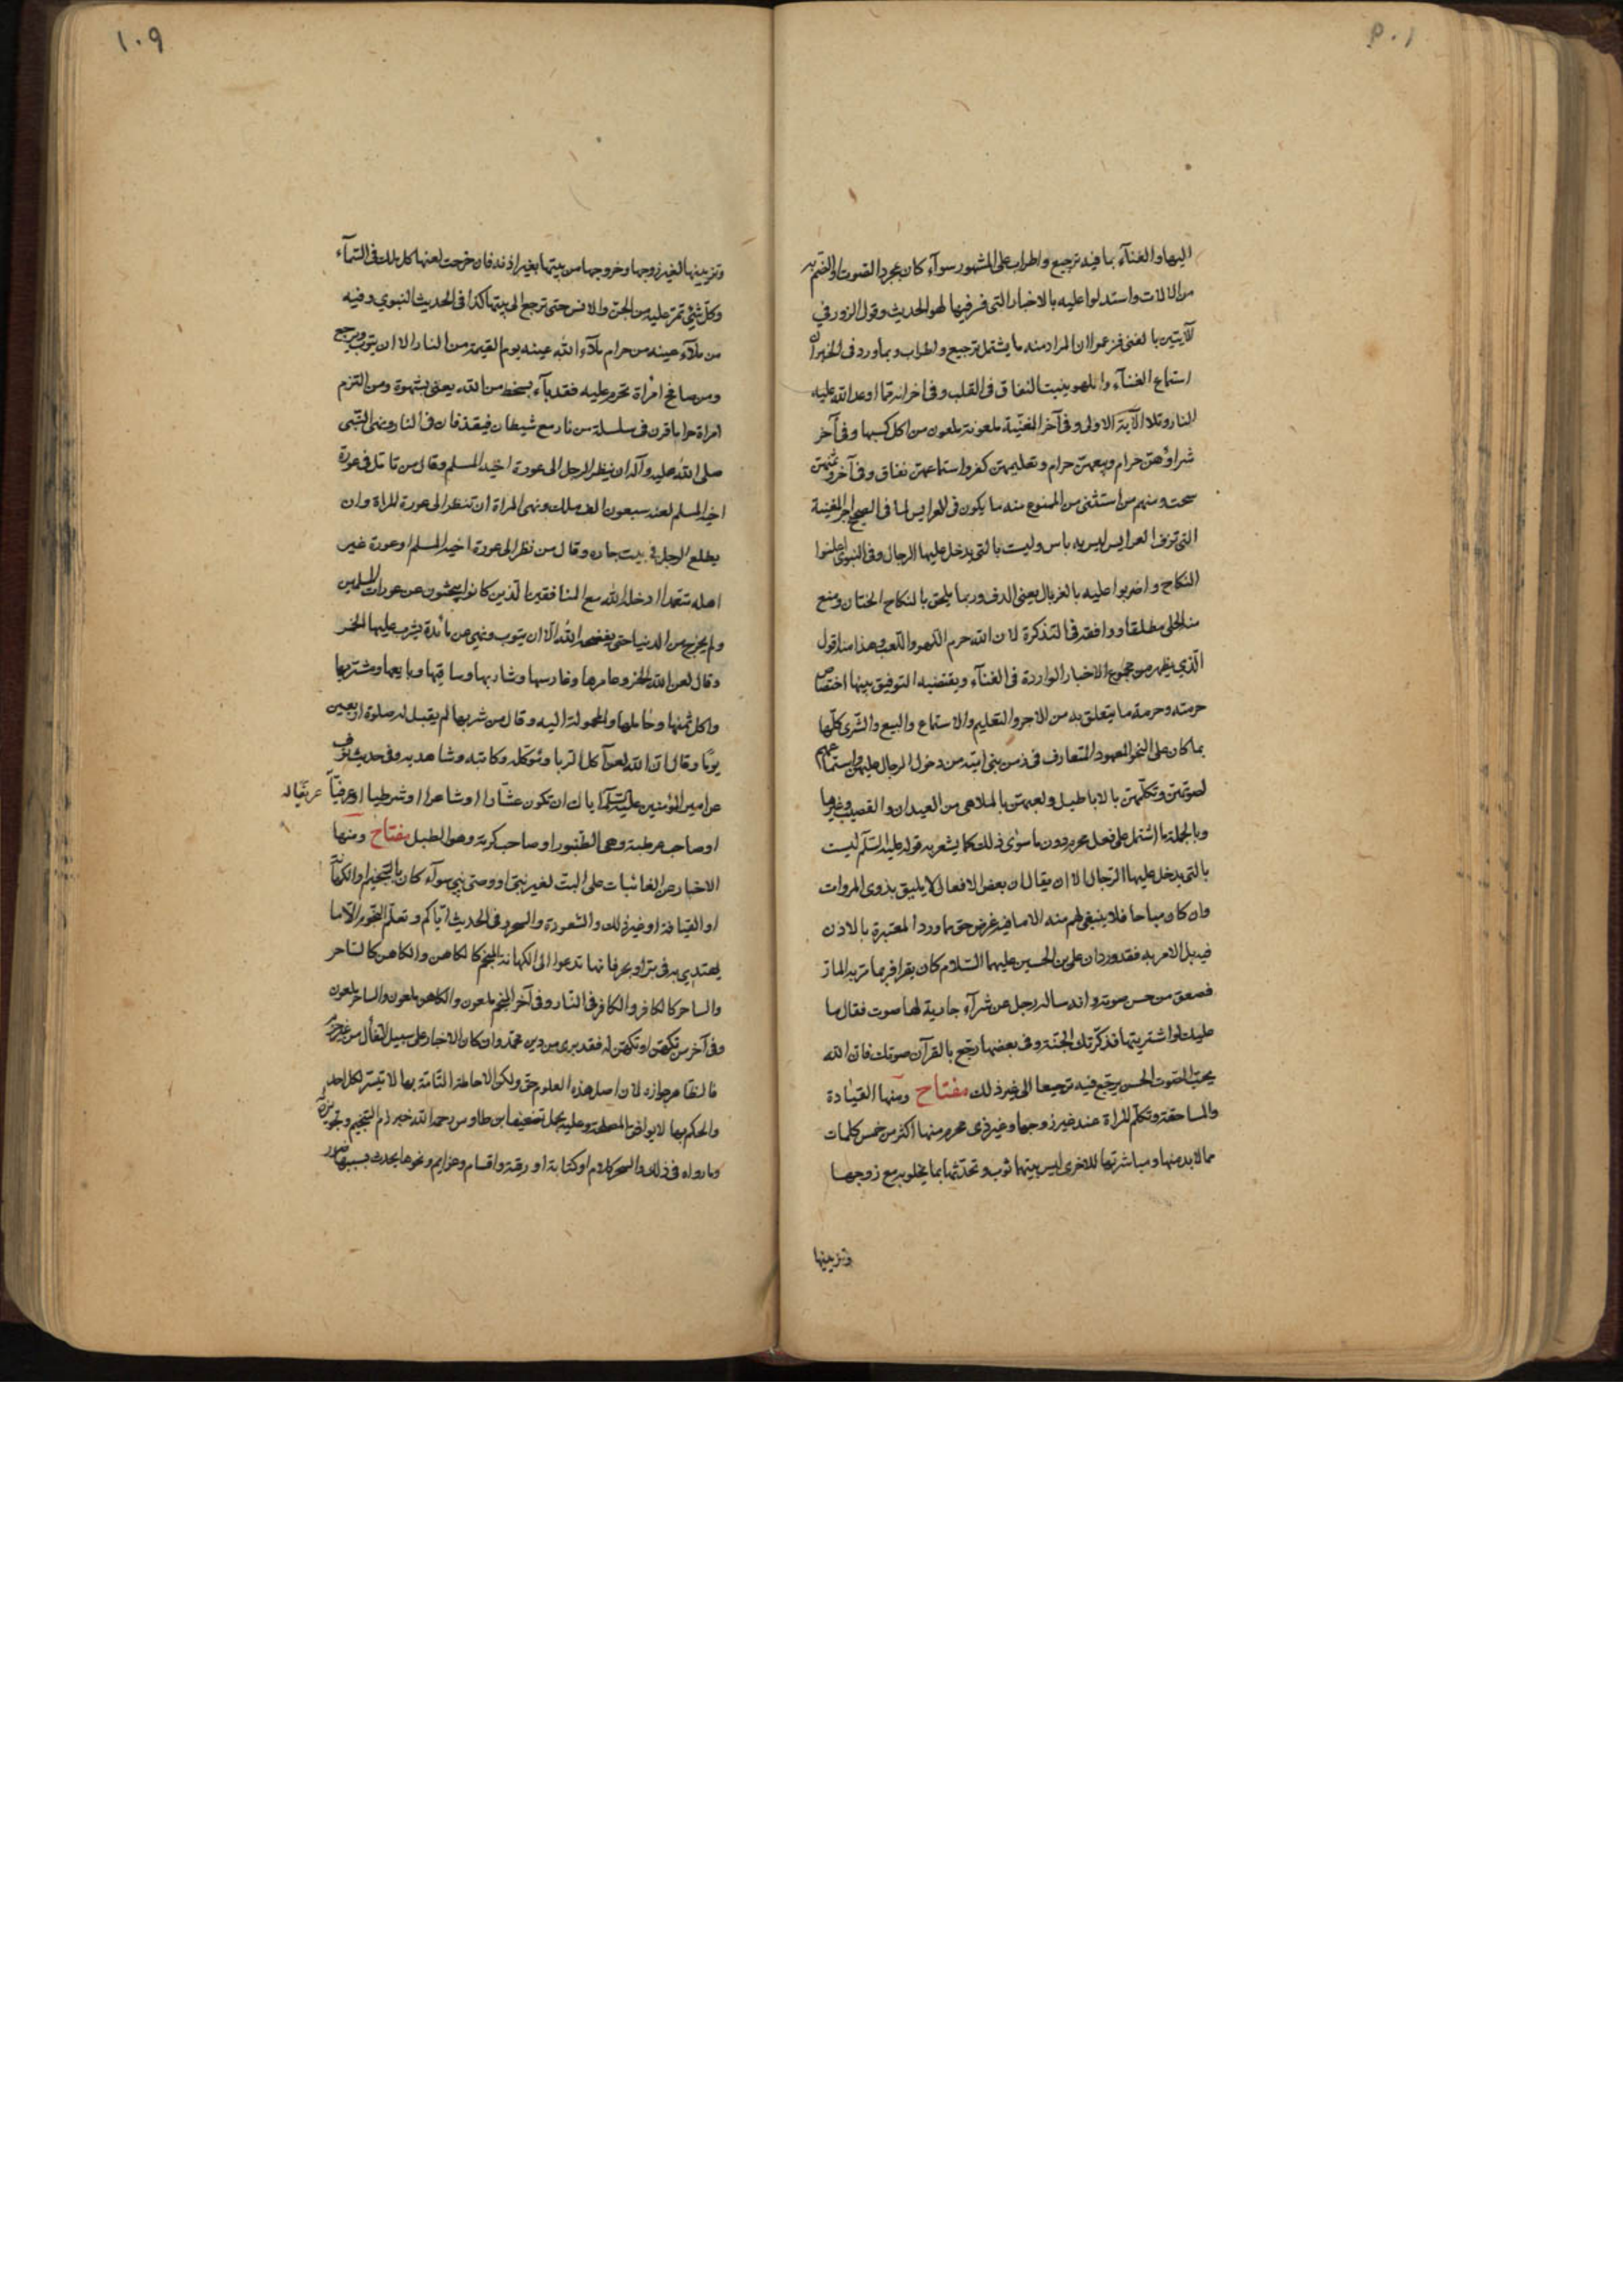 اليها والغنآء بما فيه ترجيع واطراب على المشهور سوآء كان بمجرد الصوت او انضم به
من الالات واستدلوا عليه بالاخبار التى فسر فيها لهو الحديث وقول الزور في
الآيتين بالغنى فزعموا ان المراد منه ما يشتمل ترجيع واطراب وبما ورد فى الخبر ان
استماع الغنآء واللهو ينبت النفاق فى القلب وفى اخر انه مما اوعد الله عليه
النار وتلا الآية الاولى وفى آخر المغنّية ملعونة ملعون من اكل كسبها وفى آخر
شراؤهنّ حرام وبيعهنّ حرام وتعليمهنّ كفر واستماعهنّ نفاق وفى آخر وثمنهنّ
سحت ومنهم من استثنى من الممنوع منه ما يكون فى العرايس لما فى الصحيح اجر المغنية
التى تزف العرايس ليس به باس وليست بالتى يدخل عليها الرجال وفى النبوى اعلنوا
النكاح واضربوا عليه بالغربال يعنى الدف وربما يلحق بالنكاح الختان ومنع
منه الحلى مطلقا ووافقه فى التذكرة لان الله حرم اللهو واللعب وهذا منه اقول
الّذي يظهر من مجموع الاخبار الواردة فى الغنآء ويقتضيه التوفيق بينها اختصاص
حرمته وحرمة ما يتعلق به من الاجر والتعليم والاستماع والبيع والشّرى كلّها
بما كان على النحو المعهود المتعارف فى زمن بنى اميّة من دخول الرجال عليهنّ واستماعهم
لصوتهنّ وتكلّمهنّ بالاباطيل ولعبهنّ بالملاهى من العيدان والقصب وغيرها
وبالجملة ما اشتمل على فعل محرم دون ما سوى ذلك كما يشعر به قوله عليه السّلم ليست
بالتى يدخل عليها الرّجال الا ان يقال ان بعض الافعال لا يليق بذوى المروات
وان كان مباحا فلا ينبغى لهم منه الا ما فيه غرض حق مما ورد المعتبرة بالاذن
فيه بل الامر به فقد ورد ان على بن الحسين عليهما السّلام كان يقرا فربما مرّ به المارّ
فصعق من حسن صوته وانه ساله رجل عن شرآء جارية لها صوت فقال ما
عليك لو اشتريتها فذكرتك الجنّة وفى بعضها رجّع بالقرآن صوتك فان الله
يحبّ الصّوت الحسن يرجّع فيه ترجيعا الى غير ذلك مفتاح ومنها القيادة
والمساحقة وتكلّم المراة عند غير زوجها وغير ذى محرم منها اكثر من خمس كلمات
مما لا بد منها ومباشرتها للاخرى ليس بينهما ثوب وتحدّثها بما يخلو به مع زوجها
وتزيينها
١٠٩
وتزيينها لغير زوجها وخروجها من بيتها بغير اذنه فان خرجت لعنها كل ملك فى السّمآء
وكلّ شئ تمرّ عليه من الجنّ والانس حتى ترجع الى بيتها كذا فى الحديث النبوي وفيه
من ملآء عينه من حرام ملآء الله عينه يوم القيمة من النار الا ان يتوب ويرجع
ومن صافح امرأة تحرم عليه فقد بآء بسخط من الله يعنى بشهوة ومن التزم
امراة حراما قرن فى سلسلة من نار مع شيطان فيقذفان فى النار ونهى النّبى
صلى الله عليه وآله ان ينظر الرجل الى عورة اخيه المسلم وقال من تامّل فى عورة
اخيه المسلم لعنه سبعون الف ملك ونهى المراة ان تنظر الى عورة المراة وان
يطلع الرجل فى بيت جاره وقال من نظر الى عورة اخيه المسلم او عورة غير
اهله متعمدا ادخله الله مع المنافقين الّذين كانوا يبحثون عن عورات المسلمين
ولم يخرج من الدنيا حتى يفضحه الله الّا ان يتوب ونهى عن مائدة يشرب عليها الخمر
وقال لعن الله الخمر وعاصرها وغارسها وشاربها وساقيها وبايعها ومشتريها
واكل ثمنها وحاملها والمحمولة اليه وقال من شربها لم يقبل له صلوة اربعين
يومًا وقال ان الله لعن آكل الربا وموكله وكاتبه وشاهديه وفى حديث نوف
عن امير المؤمنين عليه السّلم اياك ان تكون عشّارا او شاعرا او شرطيا او عريفاً
او صاحب عرطبة وهى الطّنبور او صاحب كوبة وهو الطبل مفتاح ومنها
الاخبار عن الغائبات على البتّ لغير نبىّ او وصى نبي سوآء كان بالتنجيم او الكهانة
او القيافة او غير ذلك والشعوذة والسحر وفى الحديث ايّاكم وتعلّم النّجوم الّا ما
يهتدى به فى برّ او بحر فانها تدعوا الى الكهانة المنجّم كالكاهن والكاهن كالساحر
والساحر كالكافر والكافر فى النّار وفى آخر المنجم ملعون والكاهن ملعون والساحر ملعون
وفى آخر من تكهّن او تكهّن له فقد برى من دين محمّد وان كان الاخبار على سبيل التفأل من غير جزم
فالظاهر جوازه لان اصل هذه العلوم حق ولكن الاحاطة التّامّة بها لا تتيسّر لكل احد
والحكم بها لا يوافق المصلحة وعليه يحمل تضعيف ابن طاوس رحمه الله خبر ذم التنجيم وتجويزه
وما رواه فى ذلك والسحر كلام او كتابة او رقية واقسام وعزايم ونحوها يحدث بسببها ضرر